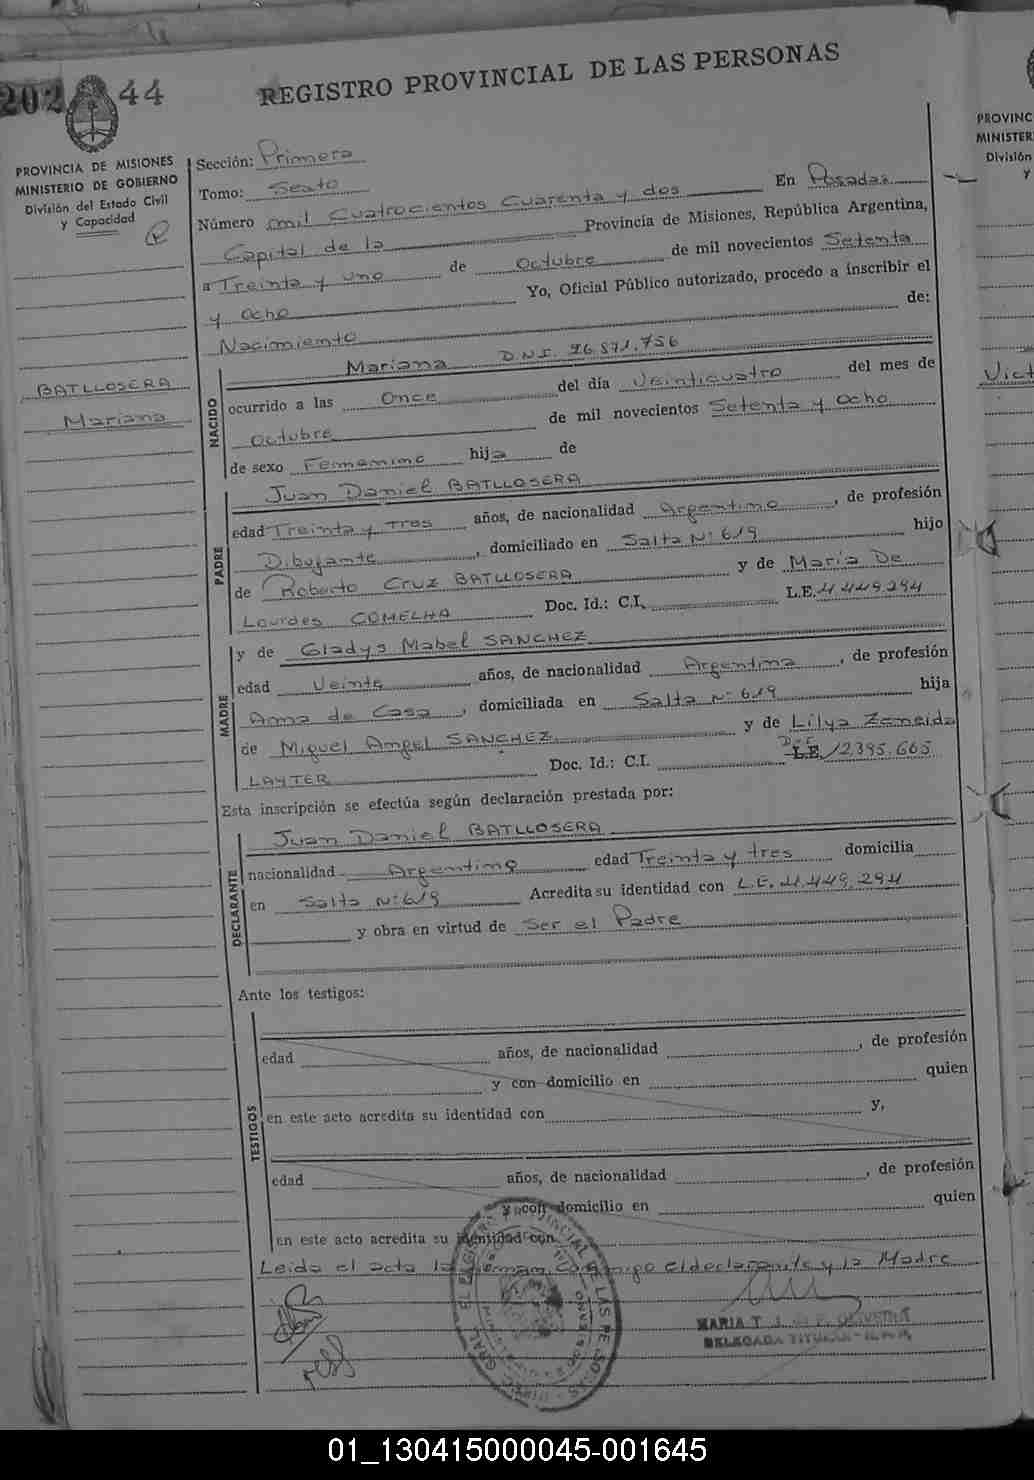 202 44
REGISTRO PROVINCIAL DE LAS PERSONAS
PROVINCIA DE MISIONES
MINISTERIO DE GOBIERNO
División del Estado Civil
y Capacidad
Sección: Primera
Tomo: Sexto
Número mil Cuatrocientos Cuarenta y dos En Posadas
Capital de la Provincia de Misiones, República Argentina,
a Treinta y uno de Octubre de mil novecientos Setenta
y Ocho Yo, Oficial Público autorizado, procedo a inscribir el
Nacimiento de:
BATLLOSERA
Mariana
NACIDO
Mariana D.N.I. 26.871.756
ocurrido a las Once del día Veinticuatro del mes de
Octubre de mil novecientos Setenta y Ocho
de sexo Femenino hija de
PADRE
Juan Daniel BATLLOSERA
edad Treinta y tres años, de nacionalidad Argentino, de profesión
Dibujante, domiciliado en Salta Nº 619 hijo
de Roberto Cruz BATLLOSERA y de María De
Lourdes COMELHA Doc. Id.: C.I. L.E. 4.449.294
MADRE
y de Gladys Mabel SANCHEZ
edad Veinte años, de nacionalidad Argentina, de profesión
Ama de Casa, domiciliada en Salta Nº 619 hija
de Miguel Angel SANCHEZ y de Lilya Zeneida
LAYTER Doc. Id.: C.I. L.E. 12.395.665
Esta inscripción se efectúa según declaración prestada por:
DECLARANTE
Juan Daniel BATLLOSERA
nacionalidad Argentino edad Treinta y tres domicilia
en Salta Nº 619 Acredita su identidad con L.E. 4.449.294
y obra en virtud de Ser el Padre
Ante los testigos:
TESTIGOS
edad años, de nacionalidad , de profesión
y con domicilio en quien
en este acto acredita su identidad con y,
edad años, de nacionalidad , de profesión
y con domicilio en quien
en este acto acredita su identidad con
Leida el acta la firman Conmigo el declarante y la Madre
MARIA T.
DELEGADA TITULAR
PROVINC
MINISTER
División
y
Vict
01_130415000045-001645